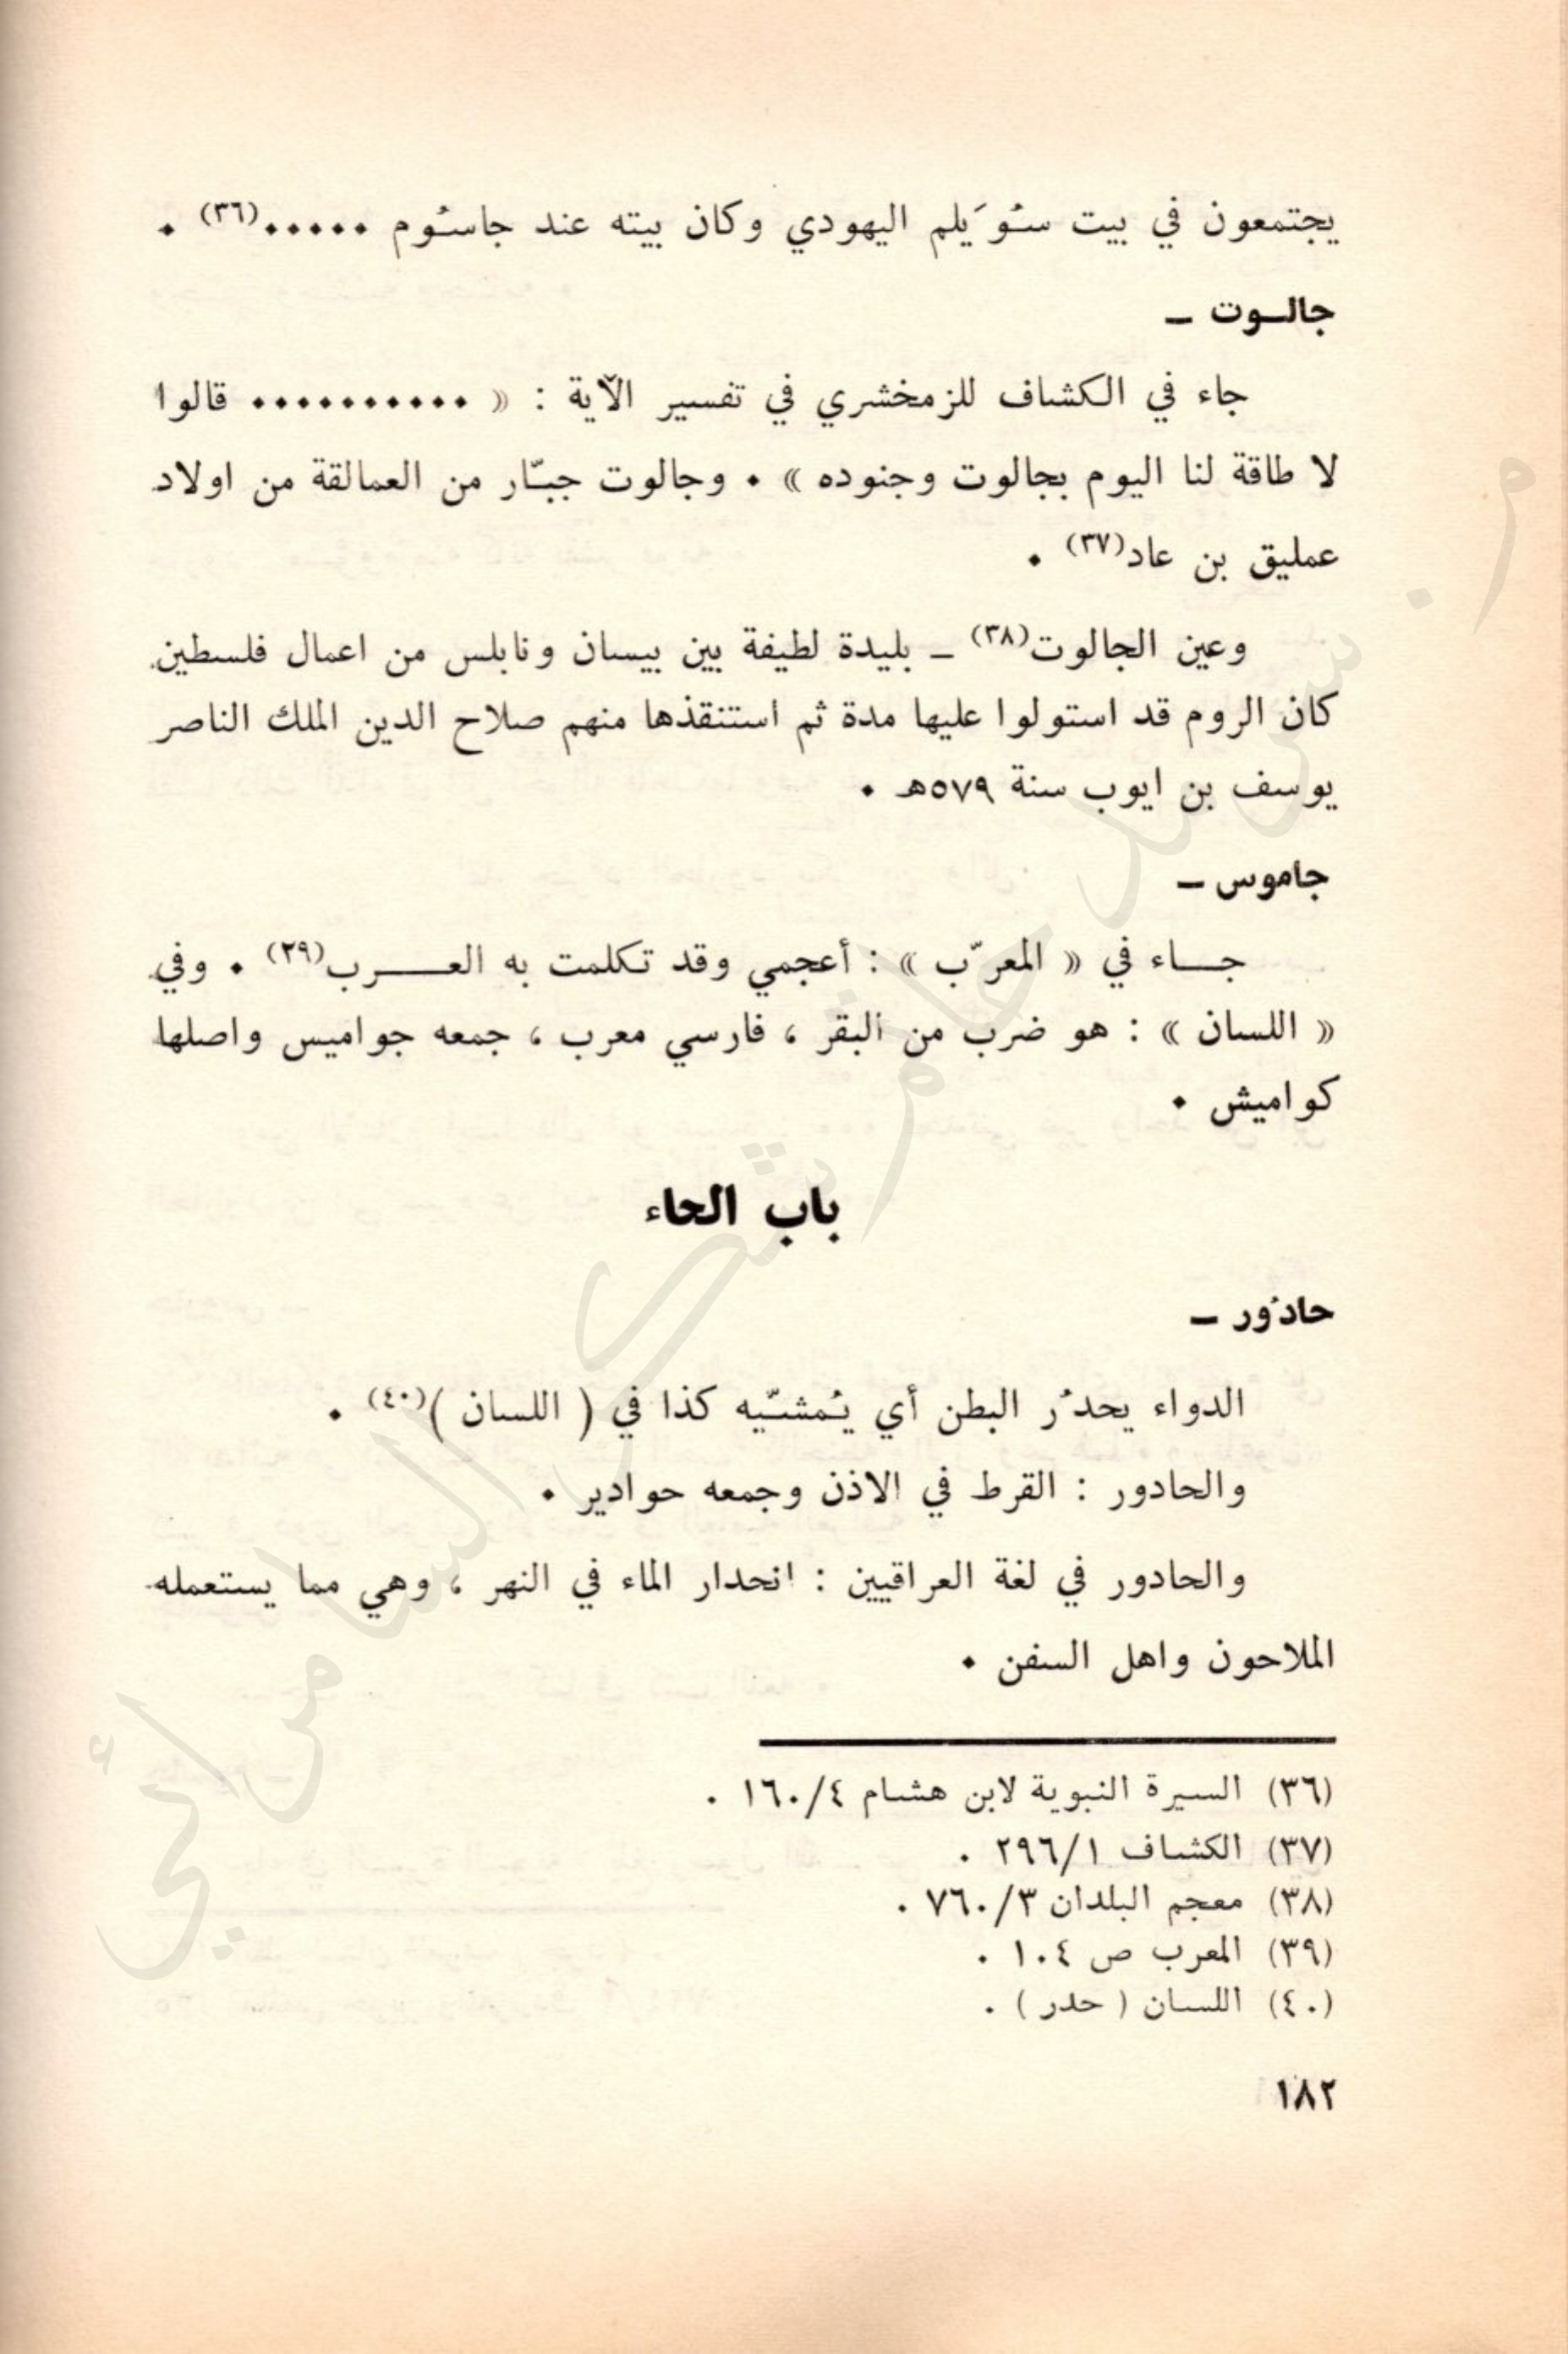 يجتمعون في بيت سُوَيلم اليهودي وكان بيته عند جاسُوم •••••(٣٦) •
جالـوت –
جاء في الكشاف للزمخشري في تفسير الآية : « •••••••••• قالوا
لا طاقة لنا اليوم بجالوت وجنوده » • وجالوت جبّار من العمالقة من اولاد
عمليق بن عاد(٣٧) •
وعين الجالوت(٣٨) – بليدة لطيفة بين بيسان ونابلس من اعمال فلسطين
كان الروم قد استولوا عليها مدة ثم استنقذها منهم صلاح الدين الملك الناصر
يوسف بن ايوب سنة ٥٧٩هـ •
جاموس –
جـــاء في « المعرّب » : أعجمي وقد تكلمت به العـــــرب(٢٩) • وفي
« اللسان » : هو ضرب من البقر ، فارسي معرب ، جمعه جواميس واصلها
كواميش •
باب الحاء
حادُور –
الدواء يحدُر البطن أي يُمشّيه كذا في ( اللسان )(٤٠) •
والحادور : القرط في الاذن وجمعه حوادير •
والحادور في لغة العراقيين : انحدار الماء في النهر ، وهي مما يستعمله
الملاحون واهل السفن •
(٣٦) السيرة النبوية لابن هشام ١٦٠/٤ .
(٣٧) الكشاف ٢٩٦/١ .
(٣٨) معجم البلدان ٧٦٠/٣ .
(٣٩) المعرب ص ١٠٤ .
(٤٠) اللسان ( حدر ) .
١٨٢